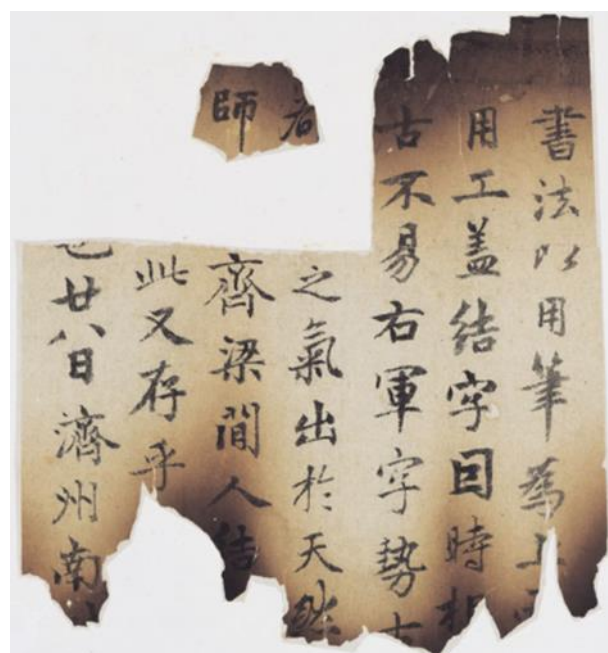 書法以用筆為上而
用工盖結字囙時相
古不易右軍字勢古
之氣出於天然
師齊梁間人結
此又存乎
也廿八日濟州南